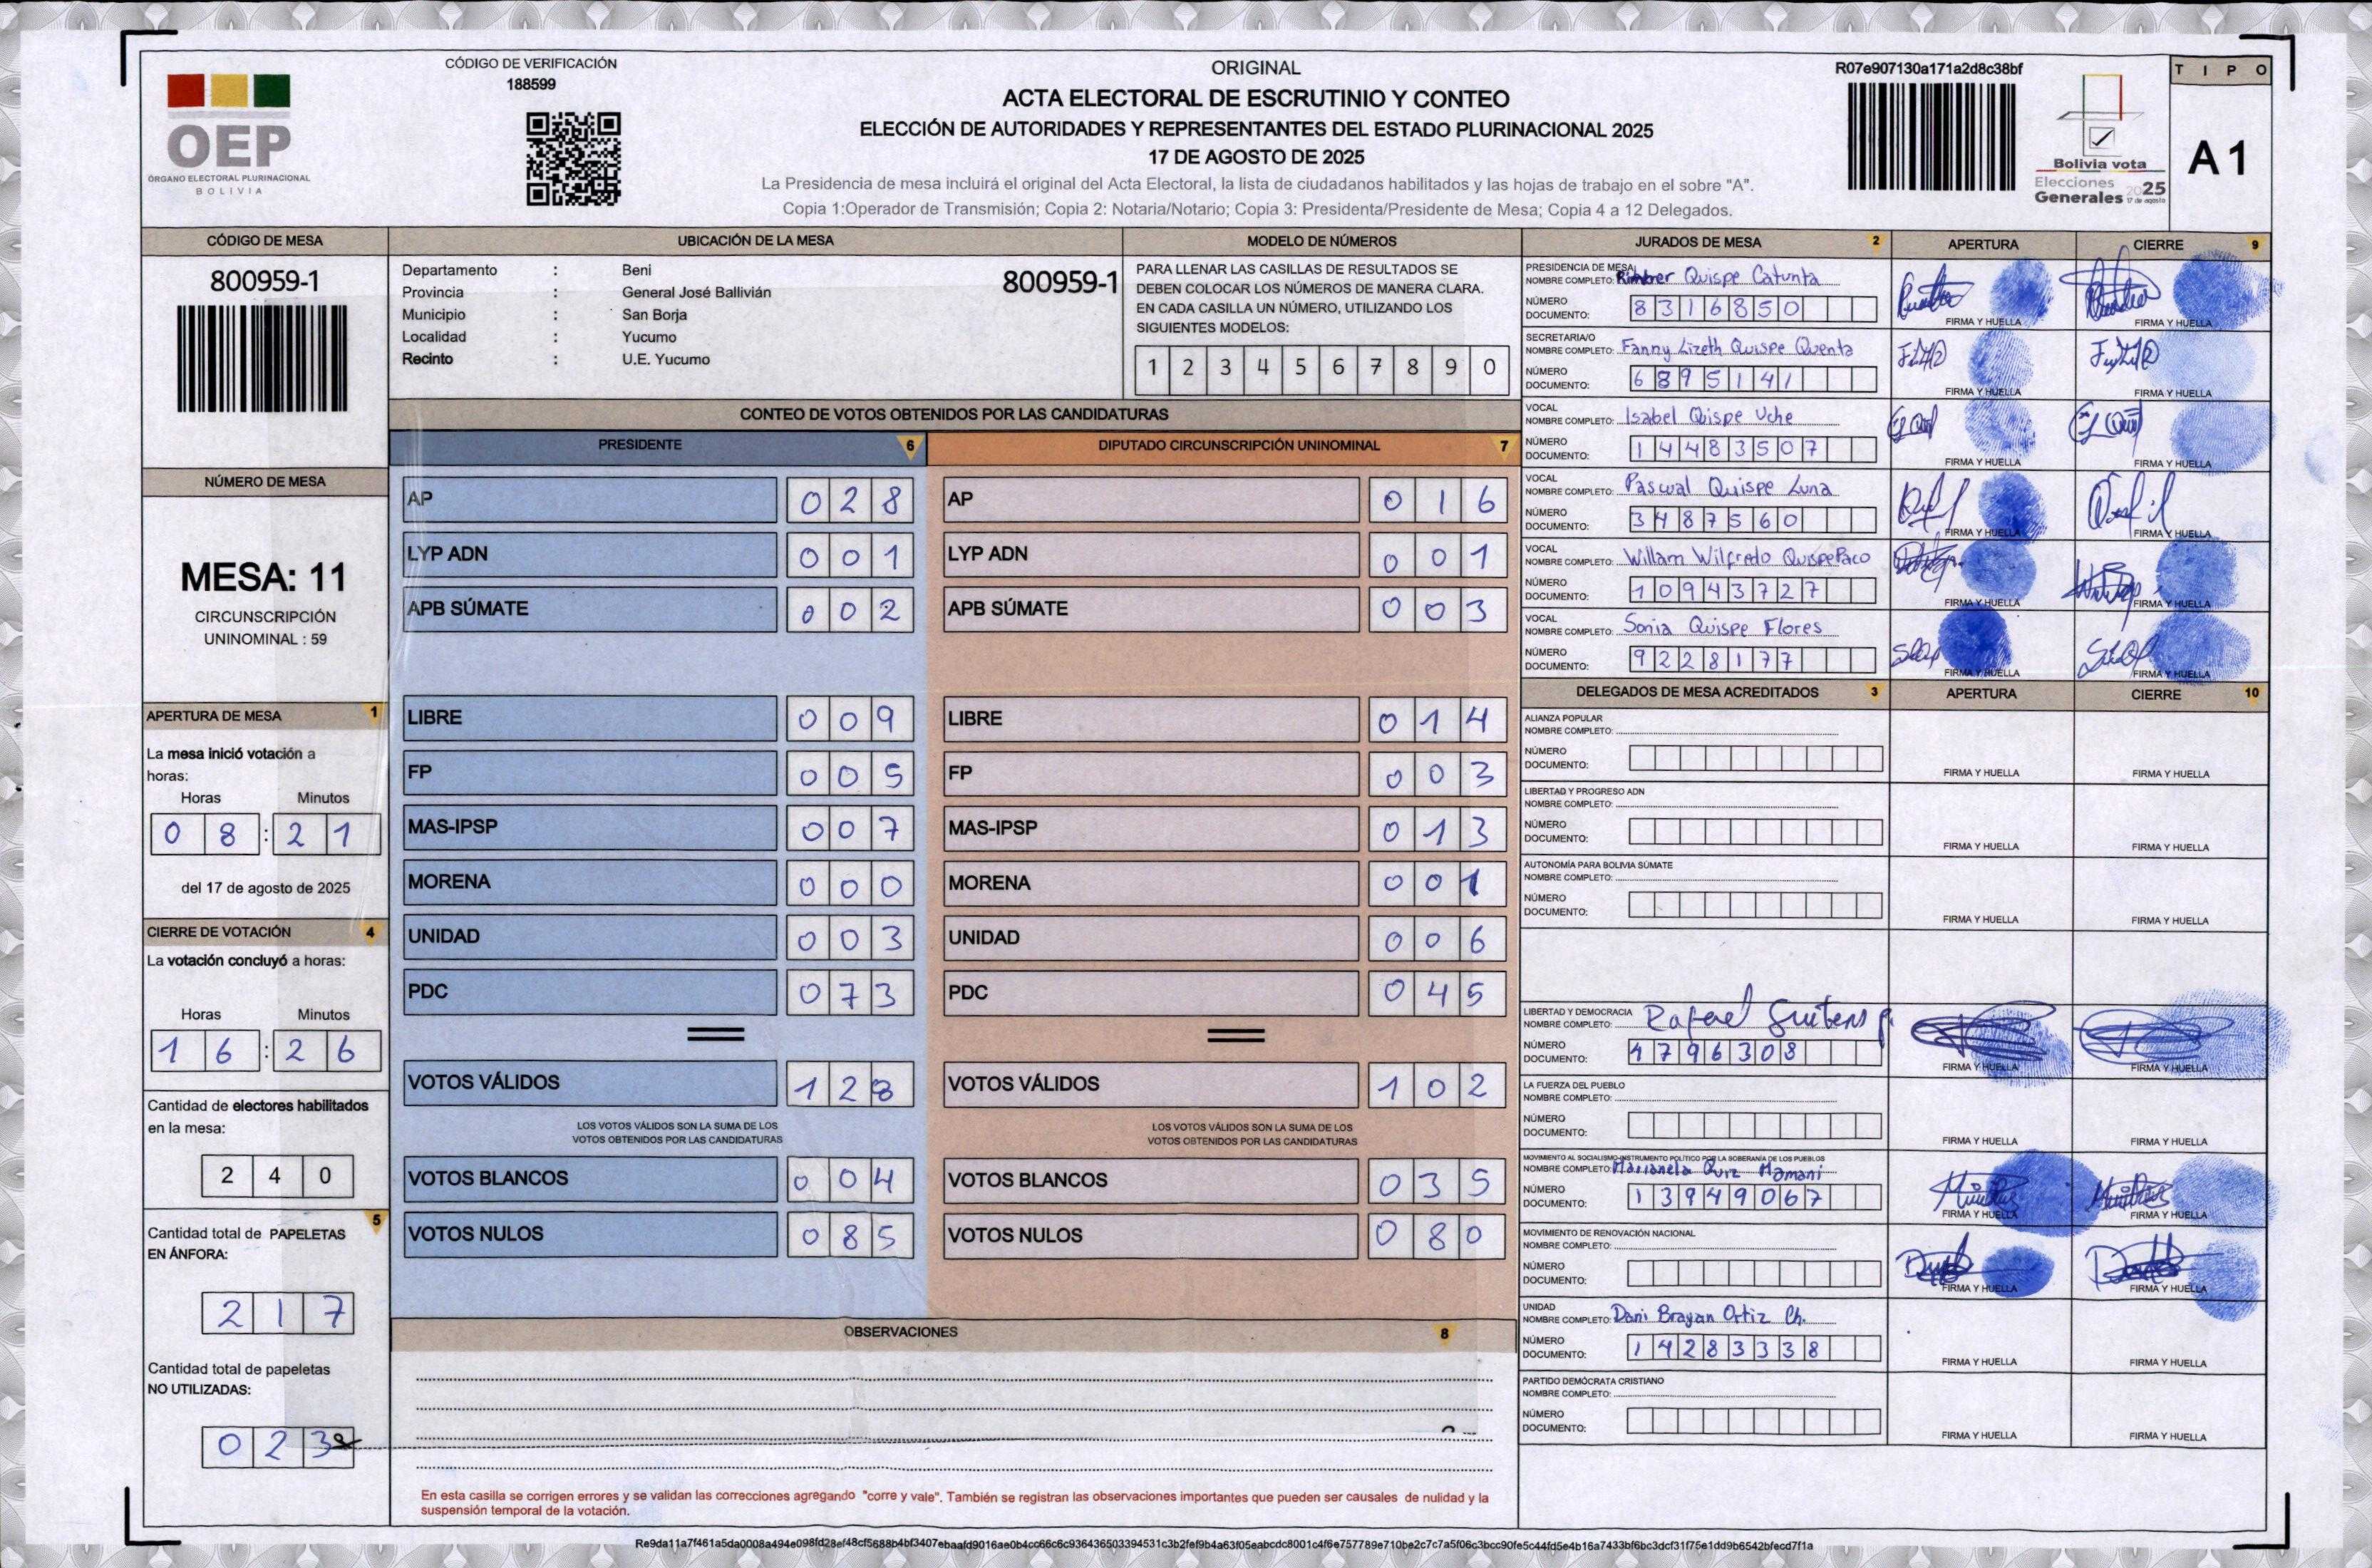 CÓDIGO DE VERIFICACIÓN
188599
OEP
ÓRGANO ELECTORAL PLURINACIONAL
BOLIVIA
ORIGINAL
ACTA ELECTORAL DE ESCRUTINIO Y CONTEO
ELECCIÓN DE AUTORIDADES Y REPRESENTANTES DEL ESTADO PLURINACIONAL 2025
17 DE AGOSTO DE 2025
La Presidencia de mesa incluirá el original del Acta Electoral, la lista de ciudadanos habilitados y las hojas de trabajo en el sobre "A".
Copia 1:Operador de Transmisión; Copia 2: Notaria/Notario; Copia 3: Presidenta/Presidente de Mesa; Copia 4 a 12 Delegados.
R07e907130a171a2d8c38bf
Bolivia vota
Elecciones
Generales 2025
17 de agosto
TIPO
A1
CÓDIGO DE MESA
800959-1
UBICACIÓN DE LA MESA
Departamento : Beni
Provincia : General José Ballivián
Municipio : San Borja
Localidad : Yucumo
Recinto : U.E. Yucumo
800959-1
MODELO DE NÚMEROS
PARA LLENAR LAS CASILLAS DE RESULTADOS SE
DEBEN COLOCAR LOS NÚMEROS DE MANERA CLARA.
EN CADA CASILLA UN NÚMERO, UTILIZANDO LOS
SIGUIENTES MODELOS:
1 2 3 4 5 6 7 8 9 0
NÚMERO DE MESA
MESA: 11
CIRCUNSCRIPCIÓN
UNINOMINAL : 59
APERTURA DE MESA 1
La mesa inició votación a
horas:
Horas Minutos
0 8 : 2 1
del 17 de agosto de 2025
CIERRE DE VOTACIÓN 4
La votación concluyó a horas:
Horas Minutos
1 6 : 2 6
Cantidad de electores habilitados
en la mesa:
2 4 0
5
Cantidad total de PAPELETAS
EN ÁNFORA:
2 1 7
Cantidad total de papeletas
NO UTILIZADAS:
0 2 3
CONTEO DE VOTOS OBTENIDOS POR LAS CANDIDATURAS
PRESIDENTE 6
AP 0 2 8
LYP ADN 0 0 1
APB SÚMATE 0 0 2
LIBRE 0 0 9
FP 0 0 5
MAS-IPSP 0 0 7
MORENA 0 0 0
UNIDAD 0 0 3
PDC 0 7 3
VOTOS VÁLIDOS 1 2 8
LOS VOTOS VÁLIDOS SON LA SUMA DE LOS
VOTOS OBTENIDOS POR LAS CANDIDATURAS
VOTOS BLANCOS 0 0 4
VOTOS NULOS 0 8 5
DIPUTADO CIRCUNSCRIPCIÓN UNINOMINAL 7
AP 0 1 6
LYP ADN 0 0 1
APB SÚMATE 0 0 3
LIBRE 0 1 4
FP 0 0 3
MAS-IPSP 0 1 3
MORENA 0 0 1
UNIDAD 0 0 6
PDC 0 4 5
VOTOS VÁLIDOS 1 0 2
LOS VOTOS VÁLIDOS SON LA SUMA DE LOS
VOTOS OBTENIDOS POR LAS CANDIDATURAS
VOTOS BLANCOS 0 3 5
VOTOS NULOS 0 8 0
OBSERVACIONES 8
En esta casilla se corrigen errores y se validan las correcciones agregando "corre y vale". También se registran las observaciones importantes que pueden ser causales de nulidad y la
suspensión temporal de la votación.
JURADOS DE MESA 2 APERTURA CIERRE 9
PRESIDENCIA DE MESA
NOMBRE COMPLETO: Quispe Catunta
NÚMERO
DOCUMENTO: 8316850
FIRMA Y HUELLA FIRMA Y HUELLA
SECRETARIA/O
NOMBRE COMPLETO: Fanny Lizeth Quispe Quenta
NÚMERO
DOCUMENTO: 6895141
FIRMA Y HUELLA FIRMA Y HUELLA
VOCAL
NOMBRE COMPLETO: Isabel Quispe Uche
NÚMERO
DOCUMENTO: 14483507
FIRMA Y HUELLA FIRMA Y HUELLA
VOCAL
NOMBRE COMPLETO: Pascual Quispe Luna
NÚMERO
DOCUMENTO: 3487560
FIRMA Y HUELLA FIRMA Y HUELLA
VOCAL
NOMBRE COMPLETO: Willam Wilfredo Quispe Paco
NÚMERO
DOCUMENTO: 10943727
FIRMA Y HUELLA FIRMA Y HUELLA
VOCAL
NOMBRE COMPLETO: Sonia Quispe Flores
NÚMERO
DOCUMENTO: 9228177
FIRMA Y HUELLA FIRMA Y HUELLA
DELEGADOS DE MESA ACREDITADOS 3 APERTURA CIERRE 10
ALIANZA POPULAR
NOMBRE COMPLETO:
NÚMERO
DOCUMENTO:
FIRMA Y HUELLA FIRMA Y HUELLA
LIBERTAD Y PROGRESO ADN
NOMBRE COMPLETO:
NÚMERO
DOCUMENTO:
FIRMA Y HUELLA FIRMA Y HUELLA
AUTONOMÍA PARA BOLIVIA SÚMATE
NOMBRE COMPLETO:
NÚMERO
DOCUMENTO:
FIRMA Y HUELLA FIRMA Y HUELLA
LIBERTAD Y DEMOCRACIA
NOMBRE COMPLETO: Rafael
NÚMERO
DOCUMENTO: 4796308
FIRMA Y HUELLA FIRMA Y HUELLA
LA FUERZA DEL PUEBLO
NOMBRE COMPLETO:
NÚMERO
DOCUMENTO:
FIRMA Y HUELLA FIRMA Y HUELLA
MOVIMIENTO AL SOCIALISMO-INSTRUMENTO POLÍTICO POR LA SOBERANÍA DE LOS PUEBLOS
NOMBRE COMPLETO: Marianela Quiz Mamani
NÚMERO
DOCUMENTO: 13949067
FIRMA Y HUELLA FIRMA Y HUELLA
MOVIMIENTO DE RENOVACIÓN NACIONAL
NOMBRE COMPLETO:
NÚMERO
DOCUMENTO:
FIRMA Y HUELLA FIRMA Y HUELLA
UNIDAD
NOMBRE COMPLETO: Dani Brayan Ortiz Ch.
NÚMERO
DOCUMENTO: 14283338
FIRMA Y HUELLA FIRMA Y HUELLA
PARTIDO DEMÓCRATA CRISTIANO
NOMBRE COMPLETO:
NÚMERO
DOCUMENTO:
FIRMA Y HUELLA FIRMA Y HUELLA